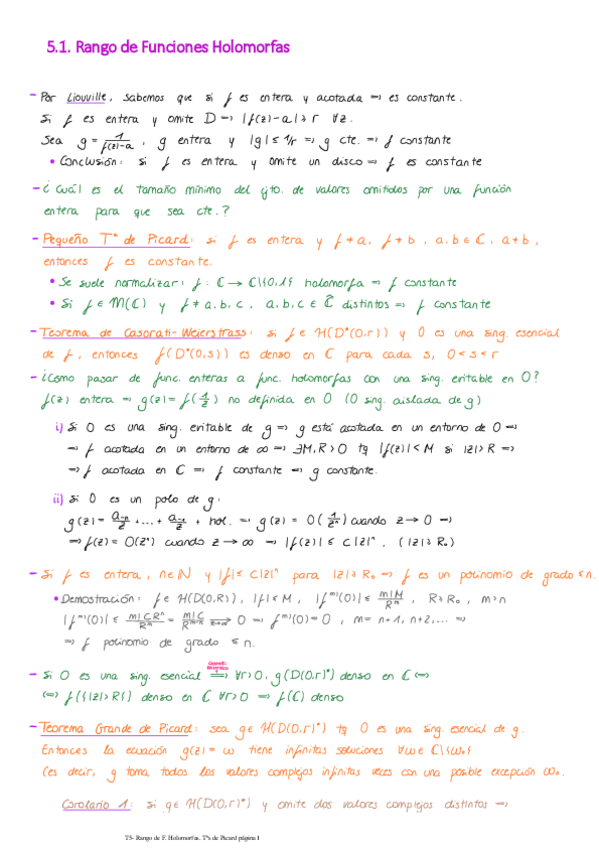 5.1. Rango de Funciones Holomorfas
- Por Liouville, sabemos que si f es entera y acotada ⟹ es constante.
Si f es entera y omite D ⟹ |f(z)-a| ≥ r ∀z.
Sea g = 1/(f(z)-a), g entera y |g| ≤ 1/r ⟹ g cte. ⟹ f constante
• Conclusión: si f es entera y omite un disco ⟹ f es constante
- ¿Cuál es el tamaño mínimo del cjto. de valores omitidos por una función
entera para que sea cte.?
- Pequeño Tª de Picard: si f es entera y f ≠ a, f ≠ b, a,b ∈ ℂ, a ≠ b,
entonces f es constante.
• Se suele normalizar: f: ℂ → ℂ\{0,1} holomorfa ⟹ f constante
• Si f ∈ M(ℂ) y f ≠ a,b,c, a,b,c ∈ Ĉ distintos ⟹ f constante
- Teorema de Casorati-Weierstrass: si f ∈ H(D*(0,r)) y 0 es una sing. esencial
de f, entonces f(D*(0,s)) es denso en ℂ para cada s, 0<s<r
- ¿Cómo pasar de func. enteras a func. holomorfas con una sing. evitable en 0?
f(z) entera ⟹ g(z) = f(1/z) no definida en 0 (0 sing. aislada de g)
i) Si 0 es una sing. evitable de g ⟹ g está acotada en un entorno de 0 ⟹
⟹ f acotada en un entorno de ∞ ⟹ ∃M,R>0 tq |f(z)| ≤ M si |z| > R ⟹
⟹ f acotada en ℂ ⟹ f constante ⟹ g constante.
ii) Si 0 es un polo de g:
g(z) = a₋ₙ/zⁿ + ... + a₋₁/z + hol. ⟹ g(z) = O(1/zⁿ) cuando z → 0 ⟹
⟹ f(z) = O(zⁿ) cuando z → ∞ ⟹ |f(z)| ≤ C|z|ⁿ, (|z| ≥ R₀)
- Si f es entera, n ∈ ℕ y |f| ≤ C|z|ⁿ para |z| ≥ R₀ ⟹ f es un polinomio de grado ≤ n.
• Demostración: f ∈ H(D(0,R)), |f| ≤ M, |f⁽ᵐ⁾(0)| ≤ m!M/Rᵐ, R ≥ R₀, m>n
|f⁽ᵐ⁾(0)| ≤ m!CRⁿ/Rᵐ = m!C/Rᵐ⁻ⁿ → 0 ⟹ f⁽ᵐ⁾(0) = 0, m = n+1, n+2,... ⟹
⟹ f polinomio de grado ≤ n.
- Si 0 es una sing. esencial ⟹ ∀r>0, g(D(0,r)*) denso en ℂ ⟺
⟺ f({|z|>R}) denso en ℂ ∀r>0 ⟹ f(ℂ) denso
- Teorema Grande de Picard: sea g ∈ H(D(0,r)*) tq 0 es una sing. esencial de g.
Entonces la ecuación g(z) = ω tiene infinitas soluciones ∀ω ∈ ℂ\{ω₀}
(es decir, g toma todos los valores complejos infinitas veces con una posible excepción ω₀.
Corolario 1: si g ∈ H(D(0,r)*) y omite dos valores complejos distintos ⟹
T5- Rango de F. Holomorfas. Tªs de Picard página 1